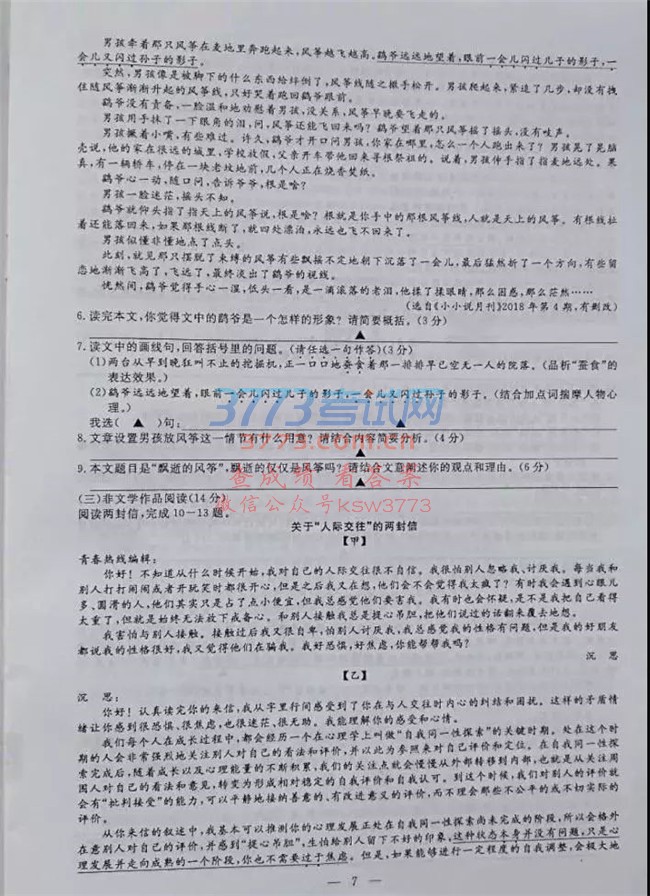 男孩牵着那只风筝在麦地里奔跑起来,风筝越飞越高。鹞爷远远地望着,眼前一会儿闪过儿子的影子,一
会儿又闪过孙子的影子。
突然,男孩像是被脚下的什么东西给绊倒了,风筝线随之撒手松开。男孩爬起来,紧追了几步,却没有拽
住随风筝渐渐升起的风筝线,只好哭着跑回鹞爷跟前。
鹞爷没有责备,一脸温和地劝慰着男孩,没关系,风筝早晚要飞走的。
男孩用手抹了一下眼角的泪,问,风筝还能飞回来吗?鹞爷望着那只风筝摇了摇头,没有吱声。
男孩撇着小嘴,有些难过。许久,鹞爷才开口问男孩,你家在哪里,怎么一个人跑出来了?男孩晃了晃脑
壳说,他的家在很远的城里,学校放假,父亲开车带他回来寻根祭祖的。说着,男孩伸手指了指麦地远处。果
真,有一辆轿车,停在一块老坟地前,几个人正在烧香焚纸。
鹞爷心一动,随口问,告诉爷爷,根是啥?
男孩一脸迷茫,摇头不知。
鹞爷就仰头指了指天上的风筝说,根是啥?根就是你手中的那根风筝线,人就是天上的风筝。有根线扯
着还能落回来,如果那根线断了,就四处漂泊,永远也飞不回来了。
男孩似懂非懂地点了点头。
此刻,就见那只摆脱了束缚的风筝有些飘摇不定地朝下沉落了一会儿,最后猛然折了一个方向,有些留
恋地渐渐飞高了,飞远了,最终淡出了鹞爷的视线。
恍然间,鹞爷觉得手心一湿,低头一看,是一滴滚落的老泪,他揉了揉眼睛,那么困惑,那么茫然……
(选自《小小说月刊》2018年第4期,有删改)
6.读完本文,你觉得文中的鹞爷是一个怎样的形象?请简要概括。(3分)
▲
7.读文中的画线句,回答括号里的问题。(请任选一句作答)(3分)
(1)两台从早到晚狂叫不止的挖掘机,正一口口地蚕食着那一排排早已空无一人的院落。(品析“蚕食”的
表达效果。)
(2)鹞爷远远地望着,眼前一会儿闪过儿子的影子,一会儿又闪过孙子的影子。(结合加点词揣摩人物心
理。)
我选( ▲ )句: ▲
8.文章设置男孩放风筝这一情节有什么用意?请结合内容简要分析。(4分)
▲
9.本文题目是“飘逝的风筝”,飘逝的仅仅是风筝吗?请结合文意阐述你的观点和理由。(6分)
▲
(三)非文学作品阅读(14分)
阅读两封信,完成10—13题。
关于“人际交往”的两封信
【甲】
青春热线编辑:
你好!不知道从什么时候开始,我对自己的人际交往很不自信。我很怕别人忽略我、讨厌我。每当我和
别人打打闹闹或者开玩笑时都很开心,但是之后我又在想,他们会不会觉得我太疯了?有时我会遇到心眼儿
多、圆滑的人,他们其实只是占了点小便宜,但我总感觉他们要害我。我有时也会怀疑,是不是我把自己看得
太重了,但就是始终无法放下戒备心。和别人接触我总是提心吊胆,把他们说过的话翻来覆去地想。
我害怕与别人接触。接触过后我又很自卑,怕别人讨厌我,我总感觉我的性格有问题,但是我的好朋友
都说我的性格很好,我又觉得他们在骗我。我好恐惧,好焦虑,你能帮帮我吗?
沉 思
【乙】
沉 思:
你好!认真读完你的来信,我从字里行间感受到了你在与人交往时内心的纠结和困扰。这样的矛盾情
绪让你感到很恐惧、很焦虑,也很迷茫、很无助。我能理解你的感受和心情。
我们每个人在成长过程中,都会经历一个在心理学上叫做“自我同一性探索”的关键时期。处在这个时
期的人会非常强烈地关注别人对自己的看法和评价,并以此为参照来对自己评价和定位。在自我同一性探
索完成后,随着成长以及心理能量的不断积累,我们的关注点就会慢慢从外部转移到内部,也就是从关注周
围人对自己的看法和意见,转变为形成相对稳定的自我评价和自我认可。到这个时候,我们对别人的评价就
会有“批判接受”的能力,可以平静地接纳善意的、有改进意义的评价,而不理会那些不公平的或不切实际的
评价。
从你来信的叙述中,我基本可以推测你的心理发展正处在自我同一性探索尚未完成的阶段,所以会格外
在意别人对自己的评价,并感到“提心吊胆”,生怕给别人留下不好的印象,这种状态本身并没有问题,只是心
理发展并走向成熟的一个阶段,你也不需要过于焦虑。但是,如果能够进行一定程度的自我调整,会极大地
— 7 —
3773考试网
www.3773.com.cn
查成绩 看答案
微信公众号ksw3773